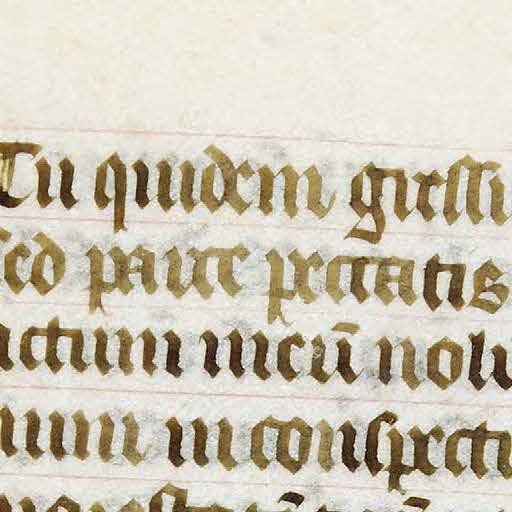 Tu quidem gressu
sed parce peccatis
actum meū
num in conspectu